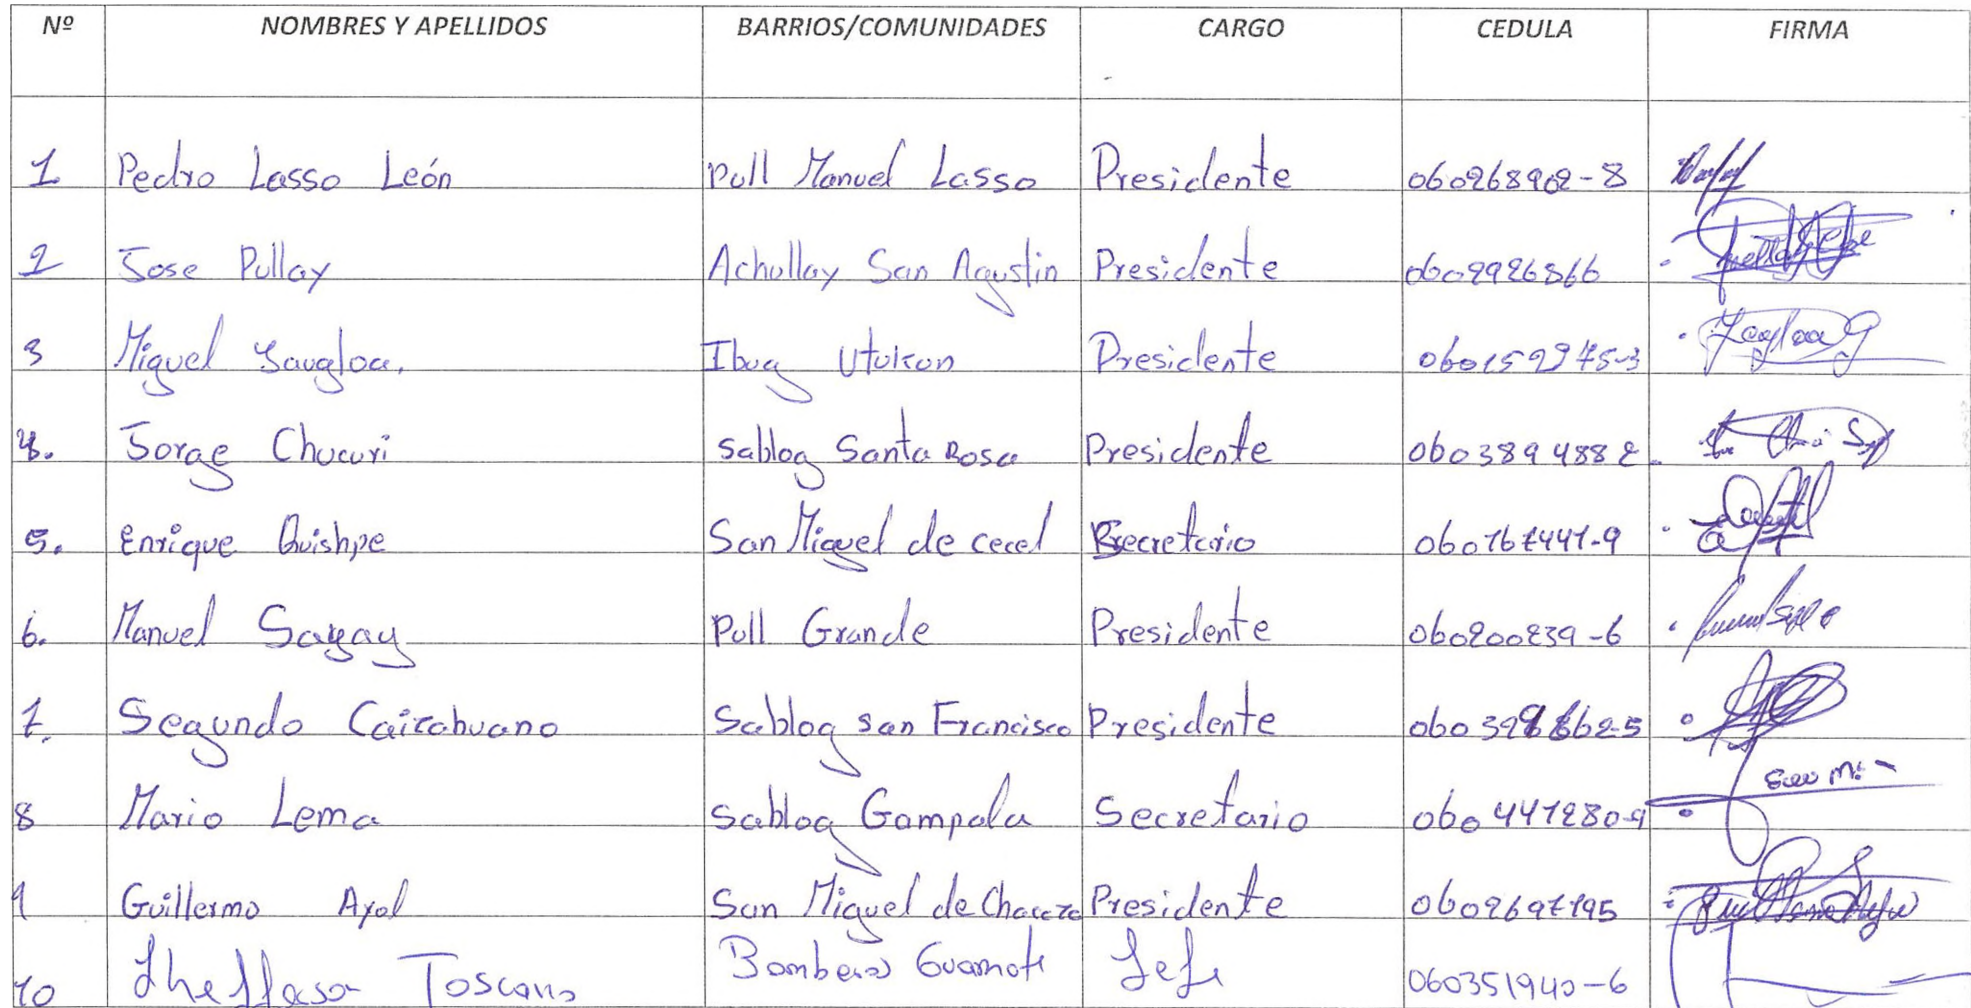 Nº NOMBRES Y APELLIDOS BARRIOS/COMUNIDADES CARGO CEDULA FIRMA
1 Pedro Lasso León Pull Manuel Lasso Presidente 060268902-8
2 Jose Pullay Achullay San Agustin Presidente 0602926866
3 Miguel Yaugloa. Ibug Utucon Presidente 060152975-3
4. Jorge Chucuri Sablog Santa Rosa Presidente 0603894882
5. Enrique Quishpe San Miguel de cecel Secretario 060167441-9
6. Manuel Sagay Pull Grande Presidente 060200239-6
7. Segundo Caizahuano Sablog San Francisco Presidente
8 Mario Lema Sablog Gampala Secretario 060441280-9
9 Guillermo Ayol San Miguel de Chacaza Presidente 0602697195
10 Jhefferson Toscano Bomberos Guamote Jefe 060351940-6